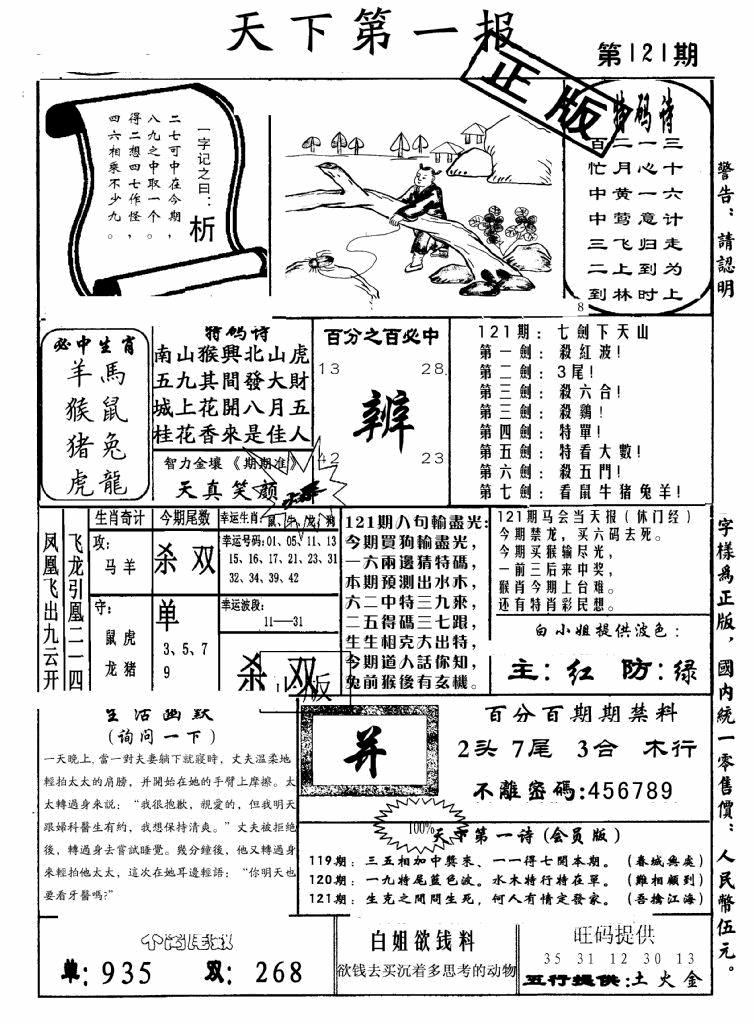 天下第一报
第121期
正版
一字记之曰：析
二七可中在今期，
八九之中取一个。
得二想四七作怪，
四六相乘不少九。
特码诗
三十六计走为上
一心一意归到时
二月黄莺飞上林
百忙中中三二到
8
警告：請認明
字樣為正版，國内統一零售價：人民幣伍元。
必中生肖
羊馬
猴鼠
猪兔
虎龍
特码诗
南山猴興北山虎
五九其間發大財
城上花開八月五
桂花香來是佳人
智力金壤《期期准》
天真笑颜
百分之百必中
13 28
辨
42 23
121期：七劍下天山
第一劍：殺紅波！
第二劍：3尾！
第三劍：殺六合！
第三劍：殺鷄！
第四劍：特單！
第五劍：特看大數！
第六劍：殺五門！
第七劍：看鼠牛猪兔羊！
凤凰飞出九云开
飞龙引凰二一四
生肖奇计
攻：
马羊
守：
鼠虎
龙猪
今期尾数
杀双
单
3、5、7
9
幸运生肖：鼠、牛、龙、狗
幸运号码：01、05、11、13
15、16、17、21、23、31
32、34、39、42
幸运波段：
11—31
杀双
版
121期八句輸盡光：
今期買狗輸盡光，
一六兩邊猜特碼，
本期預測出水木，
六二中特三九來，
二五得碼三七跟，
生生相克大出特，
今期道人話你知，
兔前猴後有玄機。
121期马会当天报（休门经）
今期禁龙，买六码去死。
今期买猴输尽光，
一前三后来中奖，
猴肖今期上台难。
还有特肖彩民想。
白小姐提供波色：
主：红 防：绿
生活幽默
（询问一下）
一天晚上,當一對夫妻躺下就寢時，丈夫温柔地
輕拍太太的肩膀，并開始在她的手臂上摩擦。太
太轉過身来説：“我很抱歉，親愛的，但我明天
跟婦科醫生有約，我想保持清爽。”丈夫被拒絶
後，轉過身去嘗試睡覺。幾分鐘後，他又轉過身
来輕拍他太太，這次在她耳邊輕語：“你明天也
要看牙醫嗎?”
并
百分百期期禁料
2头 7尾 3合 木行
不離密碼:456789
100%
天下第一诗(会员版)
119期：三五相加中獎來、一一得七開本期。（春城典處）
120期：一九特尾藍色波。水木特行特在單。（難相顧到）
121期：生克之間問生死，何人有情定發家。（吾擒江海）
单：935 双：268
白姐欲钱料
欲钱去买沉着多思考的动物
旺码提供
35 31 12 30 13
五行提供：土火金